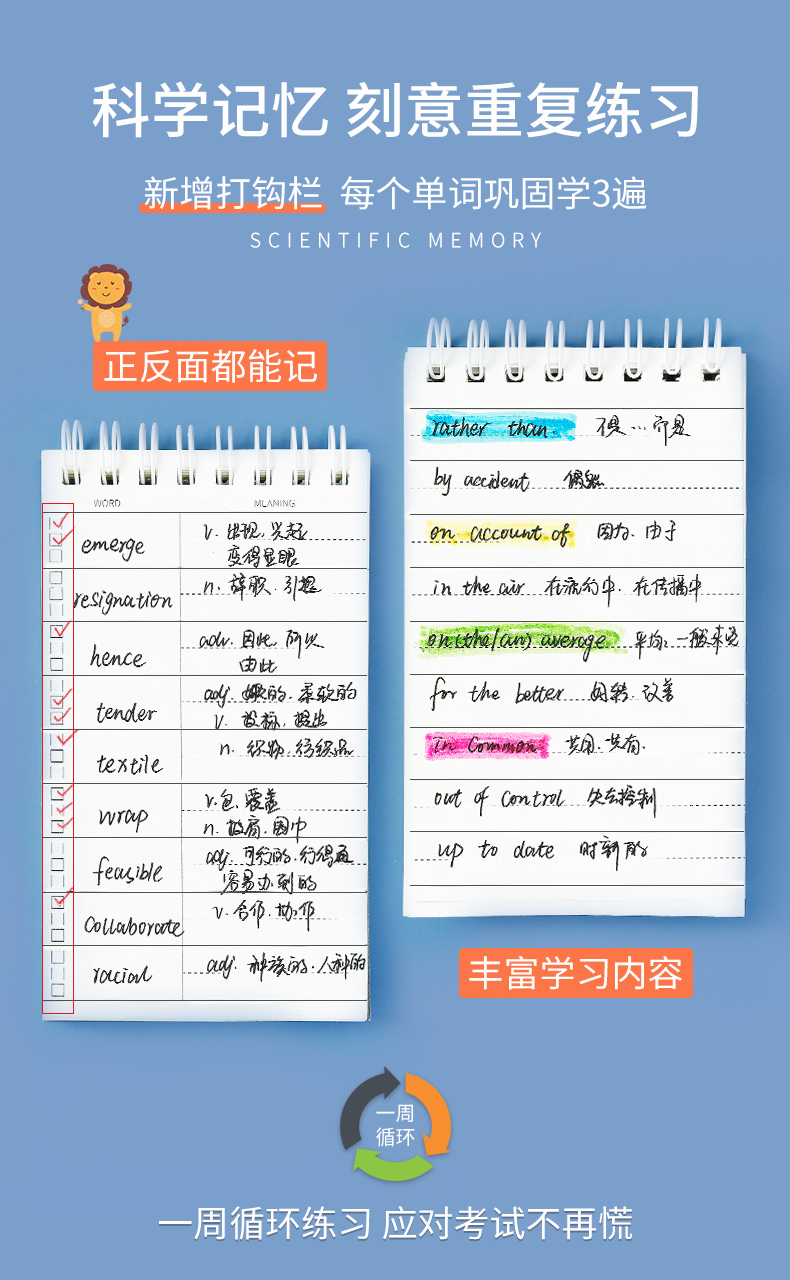 科学记忆 刻意重复练习
新增打钩栏 每个单词巩固学3遍
SCIENTIFIC MEMORY
正反面都能记
WORD MLANING
emerge v. 出现, 兴起
变得显眼
resignation n. 辞职. 引提
hence adv. 因此, 所以
由此
tender adj. 嫩的. 柔软的
v. 投标, 提出
textile n. 织物, 纺织品
wrap v. 包, 覆盖
n. 披肩, 围巾
feasible adj. 可行的, 行得通
容易办到的
Collaborate v. 合作. 协作
racial adj. 种族的. 人种的
rather than. 不是…而是
by accident 偶然
on account of 因为, 由于
in the air 在流行中, 在传播中
on(the/an) average 平均; 一般来说
for the better 好转, 改善
In Common 共用, 共有.
out of control 失去控制
up to date 时新的
丰富学习内容
一周
循环
一周循环练习 应对考试不再慌